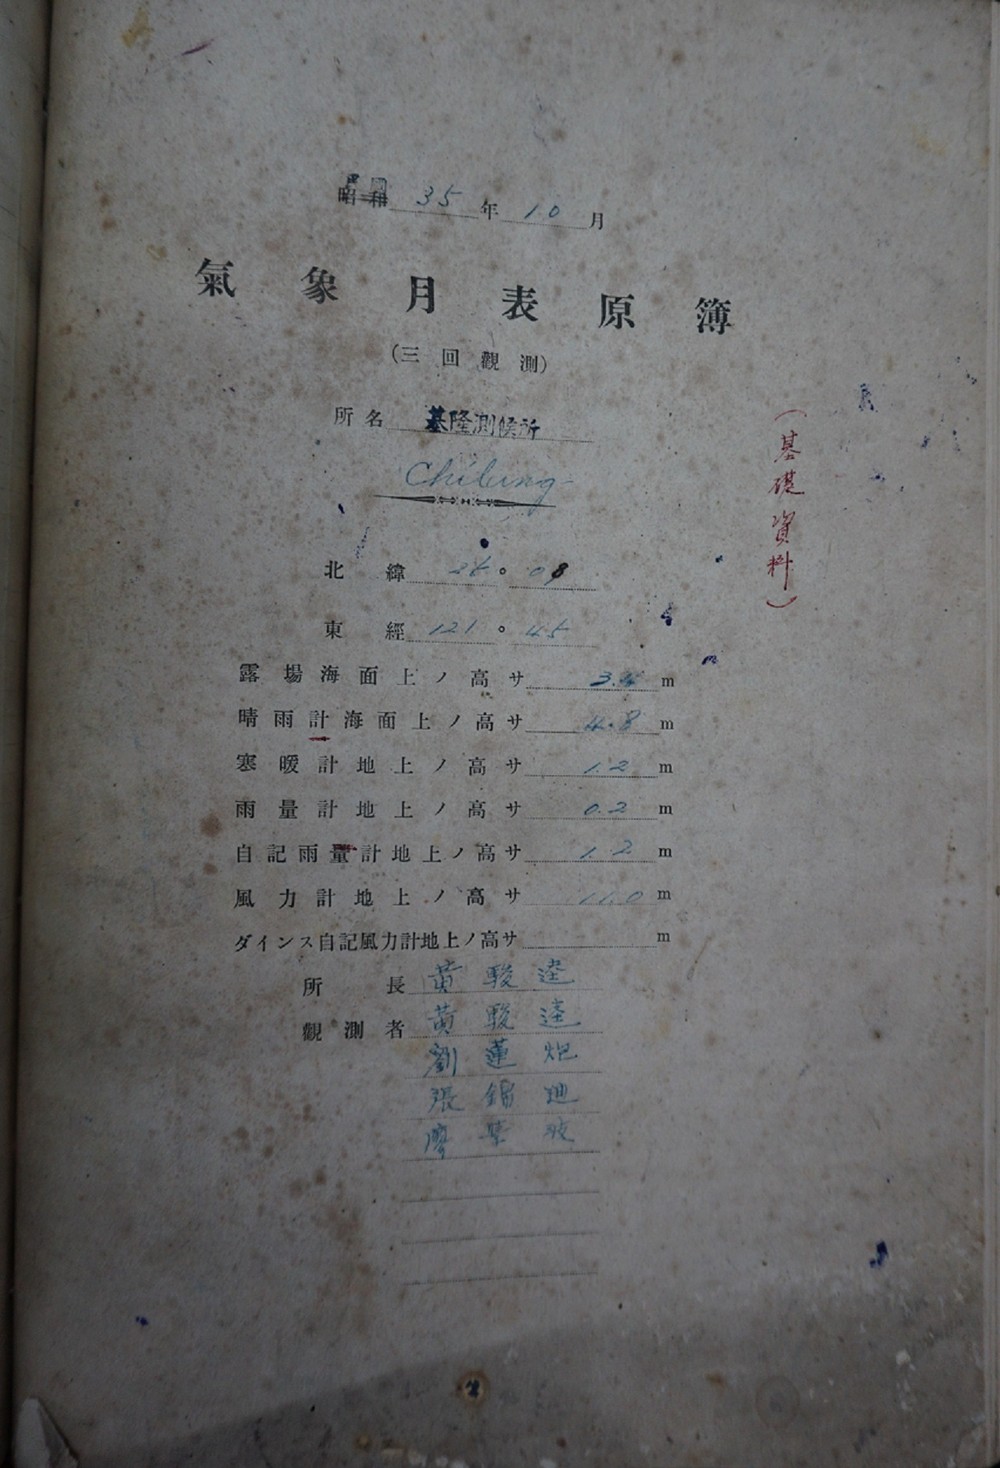 民國 35年10月
氣象月表原簿
(三回觀測)
所名 基隆測候所
Chilung
(基礎資料)
北緯 ° 08
東經 121° 45
露場海面上ノ高サ 3. m
晴雨計海面上ノ高サ 4.8 m
寒暖計地上ノ高サ 1.2 m
雨量計地上ノ高サ 0.2 m
自記雨量計地上ノ高サ 1.2 m
風力計地上ノ高サ 11.0 m
ダインス自記風力計地上ノ高サ m
所長 黃駿逵
觀測者 黃駿逵
劉蓮炮
張錫
廖